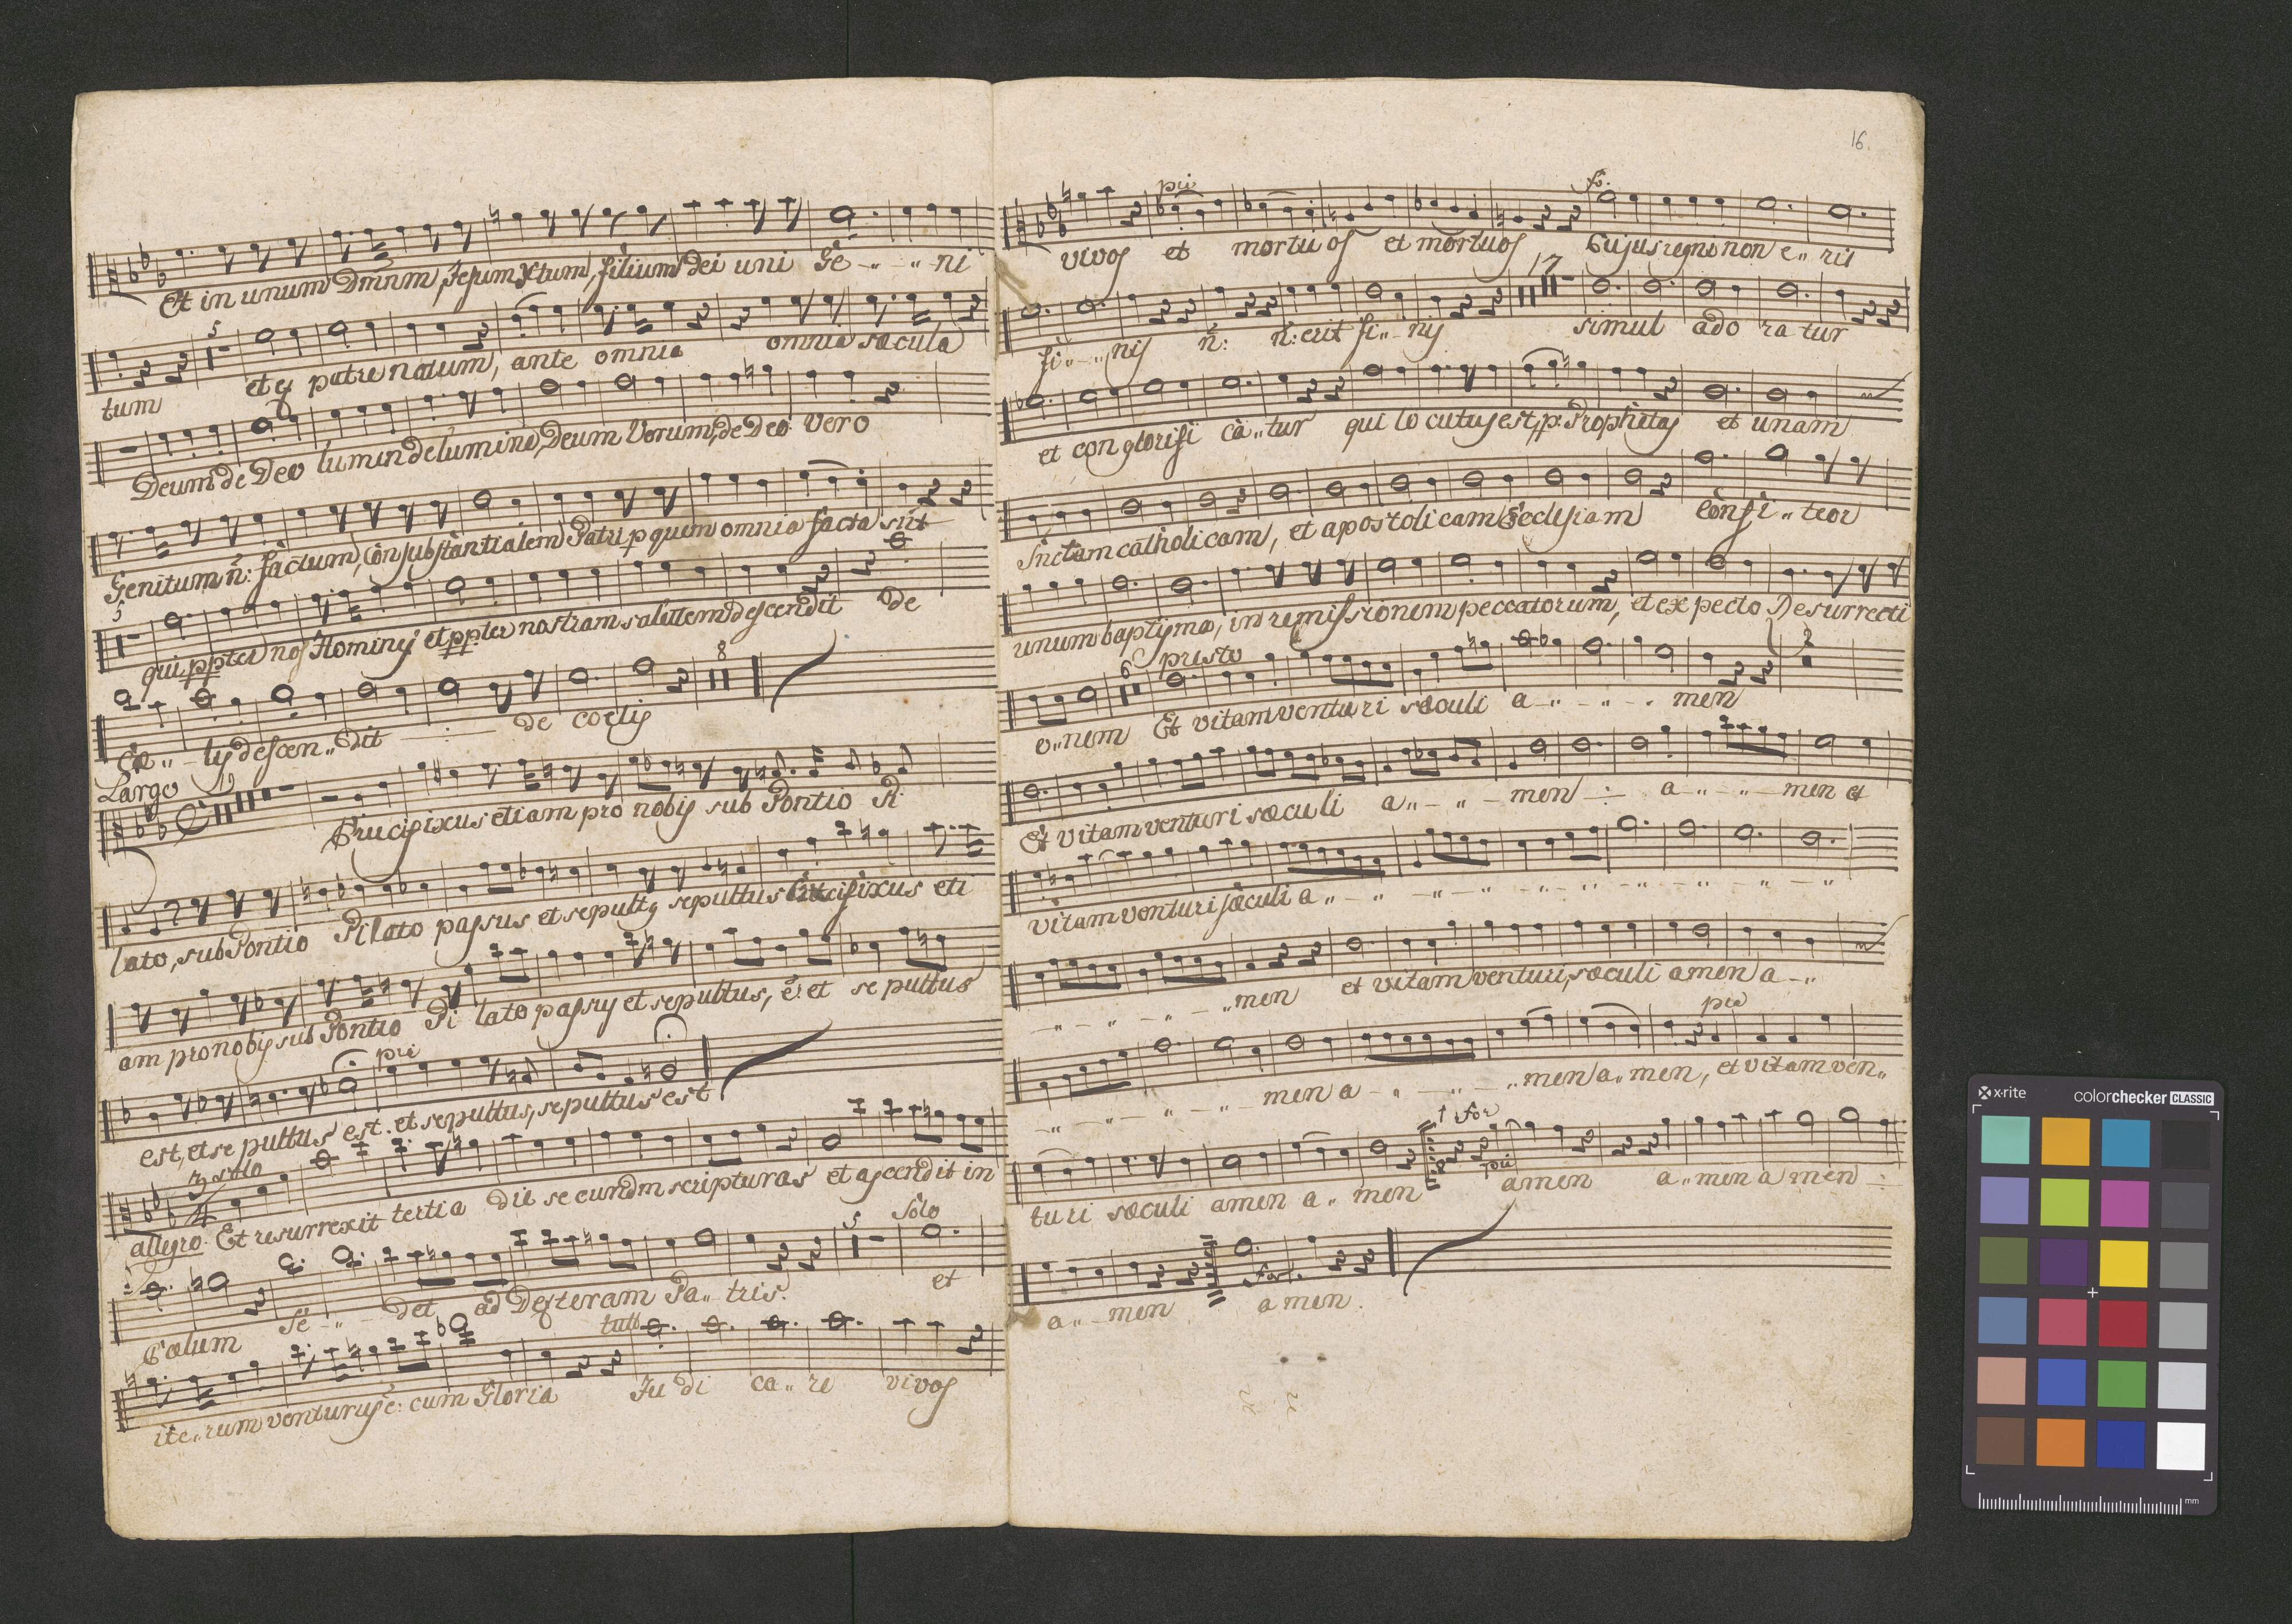 Et in unum Dmnm, Jesum Xtum, filium Dei uni Ge - " - " ni
5
tum et ex patre natum, ante omnia omnia sæcula
Deum de Deo lumen de lumine, Deum Verum, de Deo vero
Genitum ñ: factum, Consubstantialem Patri p quem omnia facta sūt
5
qui ppter nos Homines et ppter nostram salutem descendit de
8
Cæ " - lis descen " dit - : - de coelis
Largo
19
Crucifixus etiam pro nobis sub Pontio Pi
lato, sub Pontio Pilato passus et sepultg sepultus Crucifixus eti
am pro nobis sub Pontio Pi lato passus et sepultus, é et se pultus
pie
est, et se pultus est. et sepultus, sepultus est
3 solo
4
allegro. Et resurrexit tertia die secundm scripturas et ascendit in
5 Solo
Cælum Se - " - det ad Dexteram Pa " tris. et
tutti
ite " rum venturus é: cum Gloria Ju di ca " re vivos
16.
pie fo.
vivos et mortuos et mortuos Cujus regni non e " rit
17
fi " - " nis ñ: ñ: erit fi " - nis simul ado ra tur
et con glorifi ca " tur qui lo cutus est, p: Prophetas et unam
Snctam catholicam, et apostolicam Ecclesiam Confi " teor
unum baptisma, in remissionem peccatorum, et expecto Resurrecti
6 presto 2
o " nem Et vitam venturi sæculi a - " - " - " men
Et vitam venturi sæculi a " - " - men - : - a " - " - men et
vitam venturi sæculi a " - " - " - " - " - " - " - " - " - "
" - " - " - " men et vitam venturi, sæculi amen a - "
pie
- " - " - " - men a - " - " - " men a " men, et vitam ven "
1 for
pie
turi sæculi amen a " men amen a " men a men :
for.
a " - men amen.